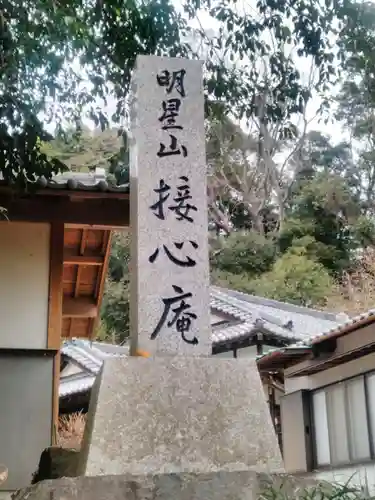 明星山
接心庵